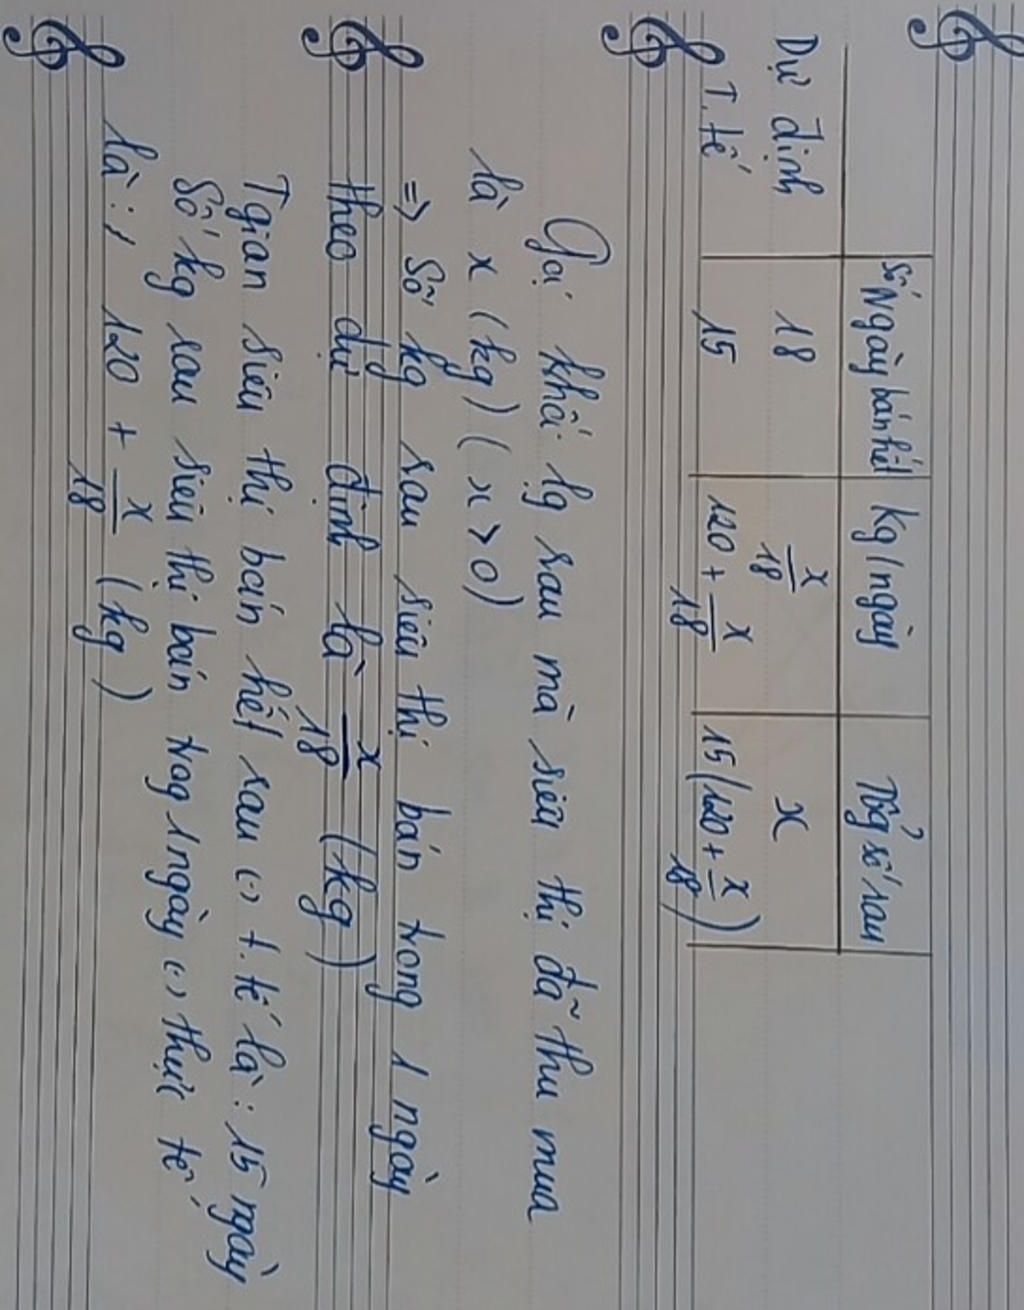 Số Ngày bán hết kg/ngày Tổg số rau
Dự định 18 x/18 x
T.tế 15 120 + x/18 15(120 + x/18)
Gọi khối lg rau mà siêu thị đã thu mua
là x (kg) (x > 0)
=> Số kg rau siêu thị bán trong 1 ngày
theo dự định là x/18 (kg)
Tgian siêu thị bán hết rau (-) t.tế là : 15 ngày
Số kg rau siêu thị bán trog 1 ngày (-) thực tế
là : 120 + x/18 (kg)